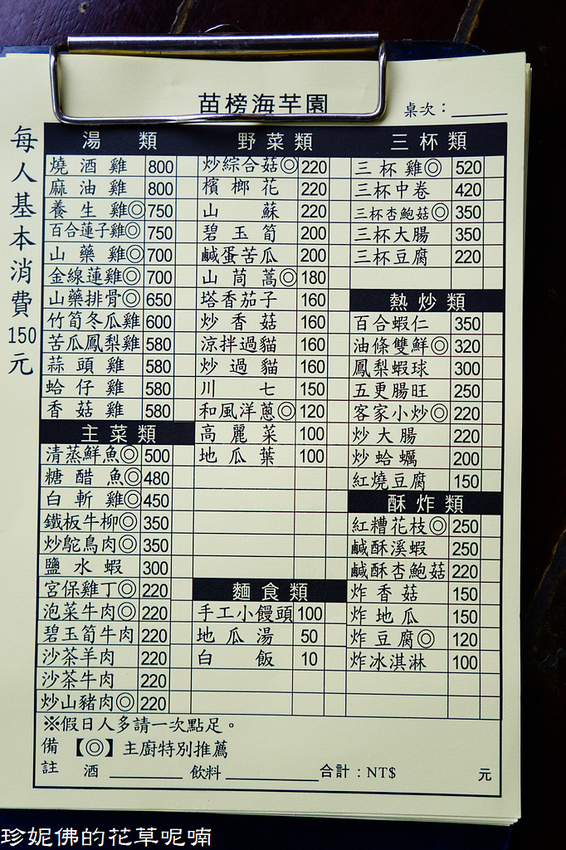 苗榜海芋園
桌次：
每人基本消費150元
湯類
燒酒雞 800
麻油雞 800
養生雞◎ 750
百合蓮子雞◎ 750
山藥雞◎ 700
金線蓮雞◎ 700
山藥排骨◎ 650
竹筍冬瓜雞 600
苦瓜鳳梨雞 580
蒜頭雞 580
蛤仔雞 580
香菇雞 580
主菜類
清蒸鮮魚◎ 500
糖醋魚◎ 480
白斬雞◎ 450
鐵板牛柳◎ 350
炒鴕鳥肉◎ 350
鹽水蝦 300
宮保雞丁◎ 220
泡菜牛肉◎ 220
碧玉筍牛肉 220
沙茶羊肉 220
沙茶牛肉 220
炒山豬肉◎ 220
野菜類
炒綜合菇◎ 220
檳榔花 220
山蘇 220
碧玉筍 200
鹹蛋苦瓜 200
山茼蒿◎ 180
塔香茄子 160
炒香菇 160
涼拌過貓 160
炒過貓 160
川七 150
和風洋蔥◎ 120
高麗菜 100
地瓜葉 100
麵食類
手工小饅頭 100
地瓜湯 50
白飯 10
三杯類
三杯雞◎ 520
三杯中卷 420
三杯杏鮑菇◎ 350
三杯大腸 350
三杯豆腐 220
熱炒類
百合蝦仁 350
油條雙鮮◎ 320
鳳梨蝦球 300
五更腸旺 250
客家小炒◎ 220
炒大腸 220
炒蛤蠣 200
紅燒豆腐 150
酥炸類
紅糟花枝◎ 250
鹹酥溪蝦 250
鹹酥杏鮑菇 220
炸香菇 150
炸地瓜 150
炸豆腐◎ 120
炸冰淇淋 100
※假日人多請一次點足。
備註【◎】主廚特別推薦
酒 飲料 合計：NT$ 元
珍妮佛的花草呢喃